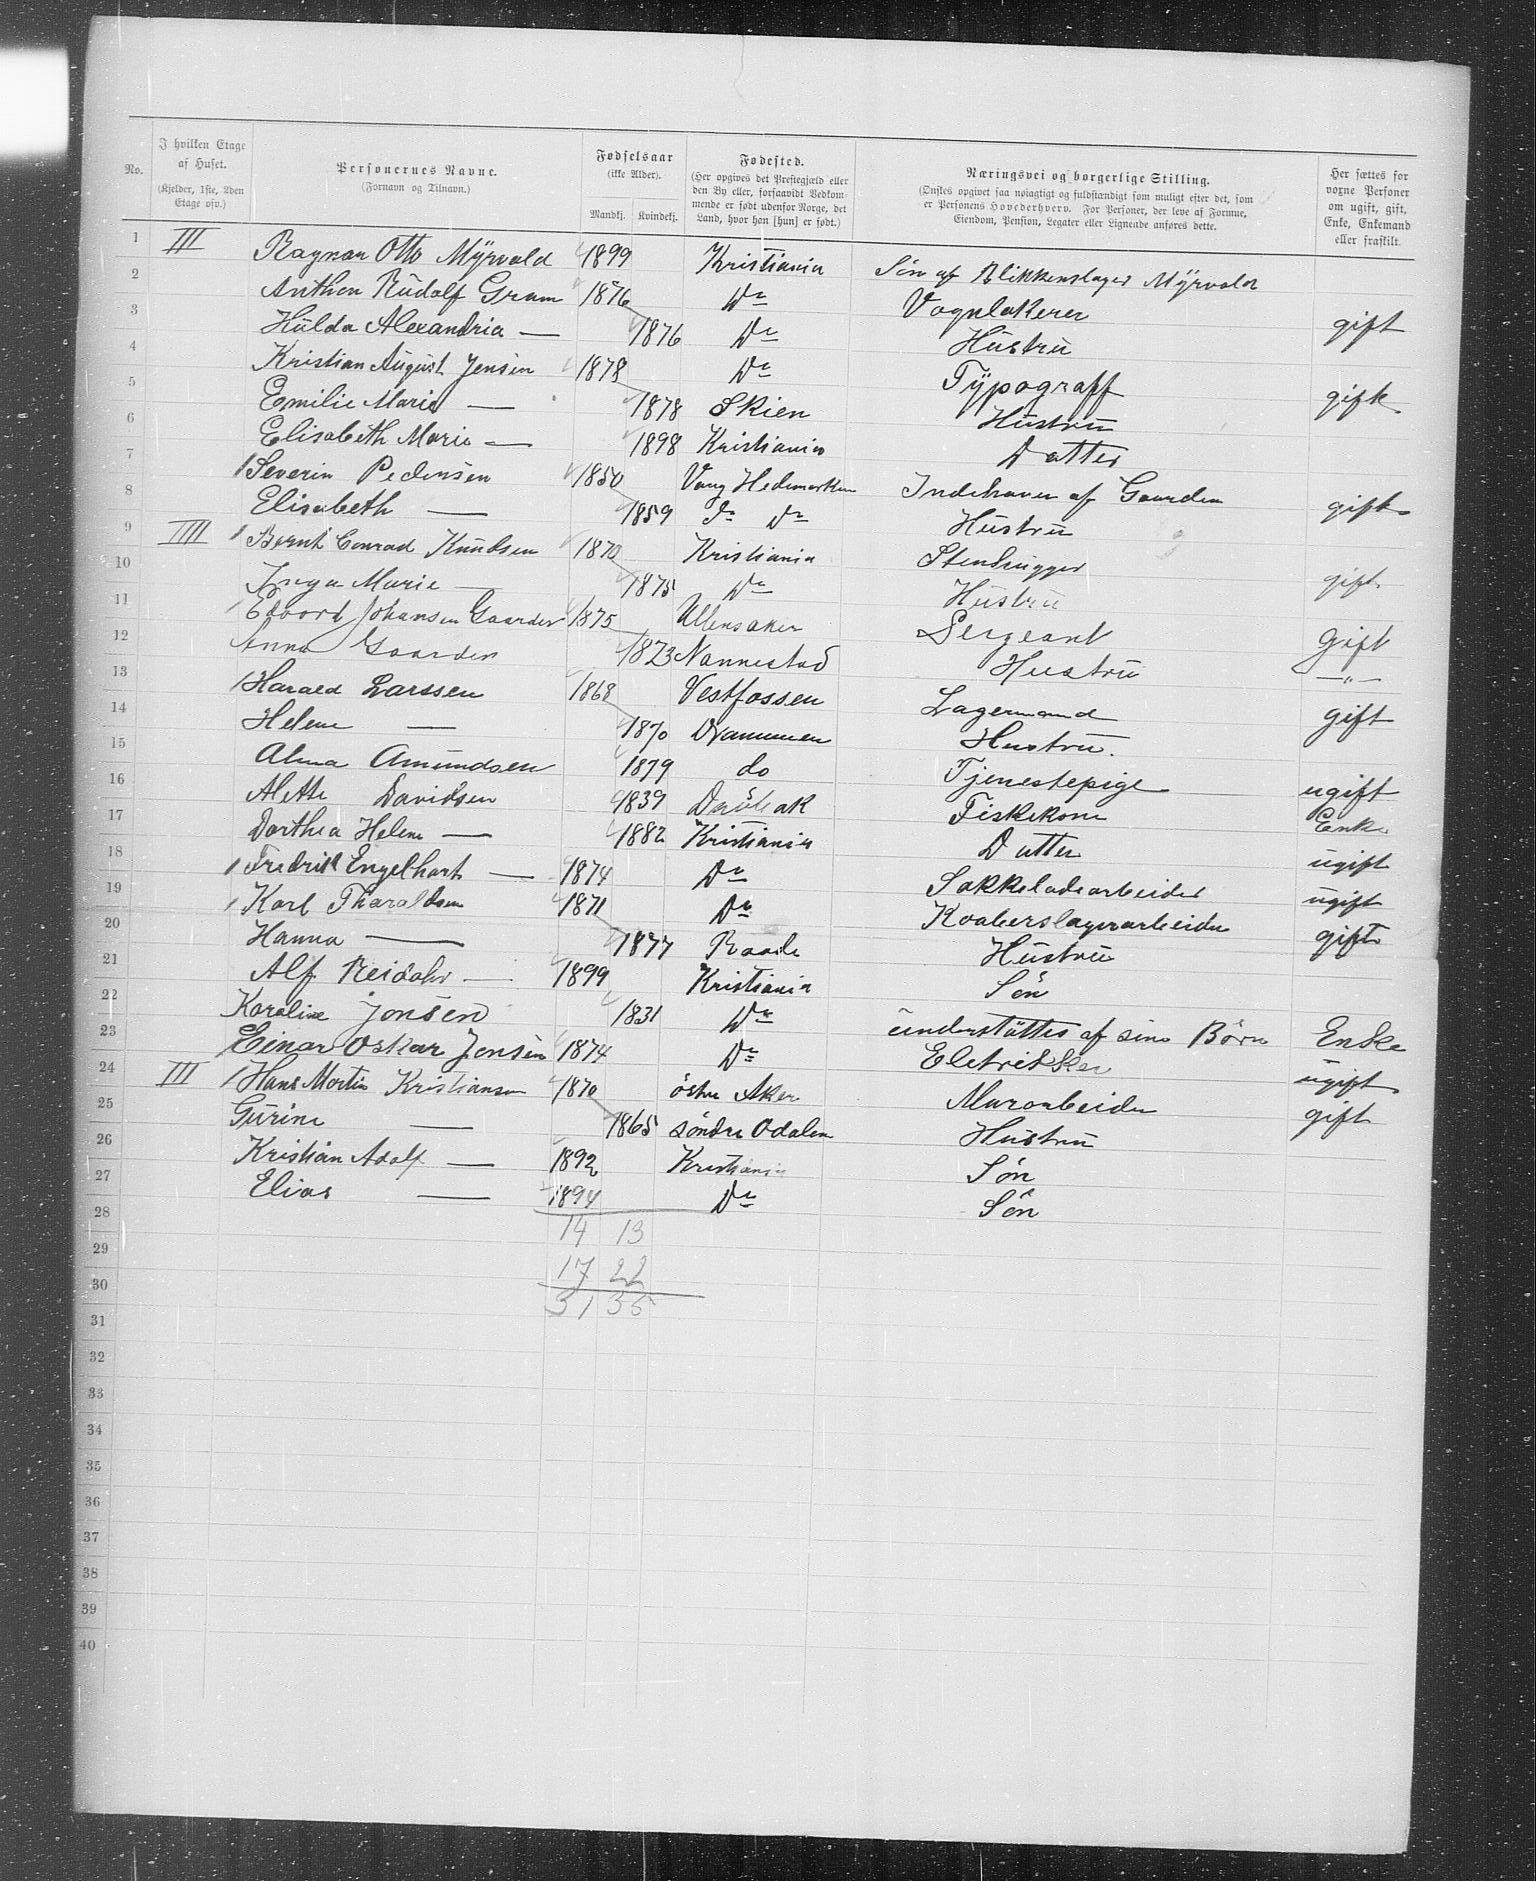 No. I hvilken Etage af Huset. (Kjelder, 1ste, 2den Etage osv.) Personernes Navne. (Fornavn og Tilnavn.) Fødselsaar (ikke Alder). Mandkj. Kvindekj. Fødested. (Her opgives det Prestegjæld eller den By eller, forsaavidt Vedkommende er født udenfor Norge, det Land, hvor han [hun] er født.) Næringsvei og borgerlige Stilling. (Ønskes opgivet saa nøiagtigt og fuldstændigt som muligt efter det, som er Personens Hovederhverv. For Personer, der leve af Formue, Eiendom, Pension, Legater eller Lignende anføres dette. Her sættes for voxne Personer om ugift, gift, Enke, Enkemand eller fraskilt.
1 III Ragnar Otto Myrvold 1899 Kristiania Søn af Blikkenslager Myrvold
2 Anthon Rudolf Gram 1876 Do Vognlakerer gift
3 Hulda Alexandria — 1876 Do Hustru
4 Kristian August Jensen 1878 Do Typograff gift
5 Emilie Marie — 1878 Skien Hustru
6 Elisabeth Marie — 1898 Kristiania Datter
7 Severin Pedersen 1850 Vang Hedemarken Indehaver af Gaarden gift
8 Elisabeth — 1859 do do Hustru
9 IIII Bernt Conrad Knudsen 1870 Kristiania Stenhugger gift
10 Inga Marie — 1875 Do Hustru
11 Edvord Johansen Gaarder 1875 Ullensaker Sergeant Gift
12 Anna Gaarder 1873 Nannestad Hustru —"—
13 Harald Larssen 1868 Vestfossen Lagermand gift
14 Helene — 1870 Drammen Hustru.
15 Alma Amundsen 1879 do Tjenestepige ugift
16 Alette Davidsen 1839 Fiskekone Enke
17 Dorthea Helene — 1882 Kristiania Datter ugift
18 Fredrik Engelhart — 1874 Do ugift
19 Karl Tharaldsen 1871 Do Kobberslagerarbeider gift
20 Hanna — 1877 Raade Hustru
21 Alf Reidahr — 1899 Kristiania Søn
22 Karoline Jonsen 1831 Do understøttes af sine Børn Enke
23 Einar Oskar Jensen 1874 Do Eletrikker ugift
24 III Hans Martin Kristiansen 1870 østre Aker Murarbeider gift
25 Gurine — 1865 søndre Odalen Hustru
26 Kristian Adolf — 1892 Kristiania Søn
27 Elias — 1894 Do Søn
28 14 13
29 17 22
30 31 35
31
32
33
34
35
36
37
38
39
40